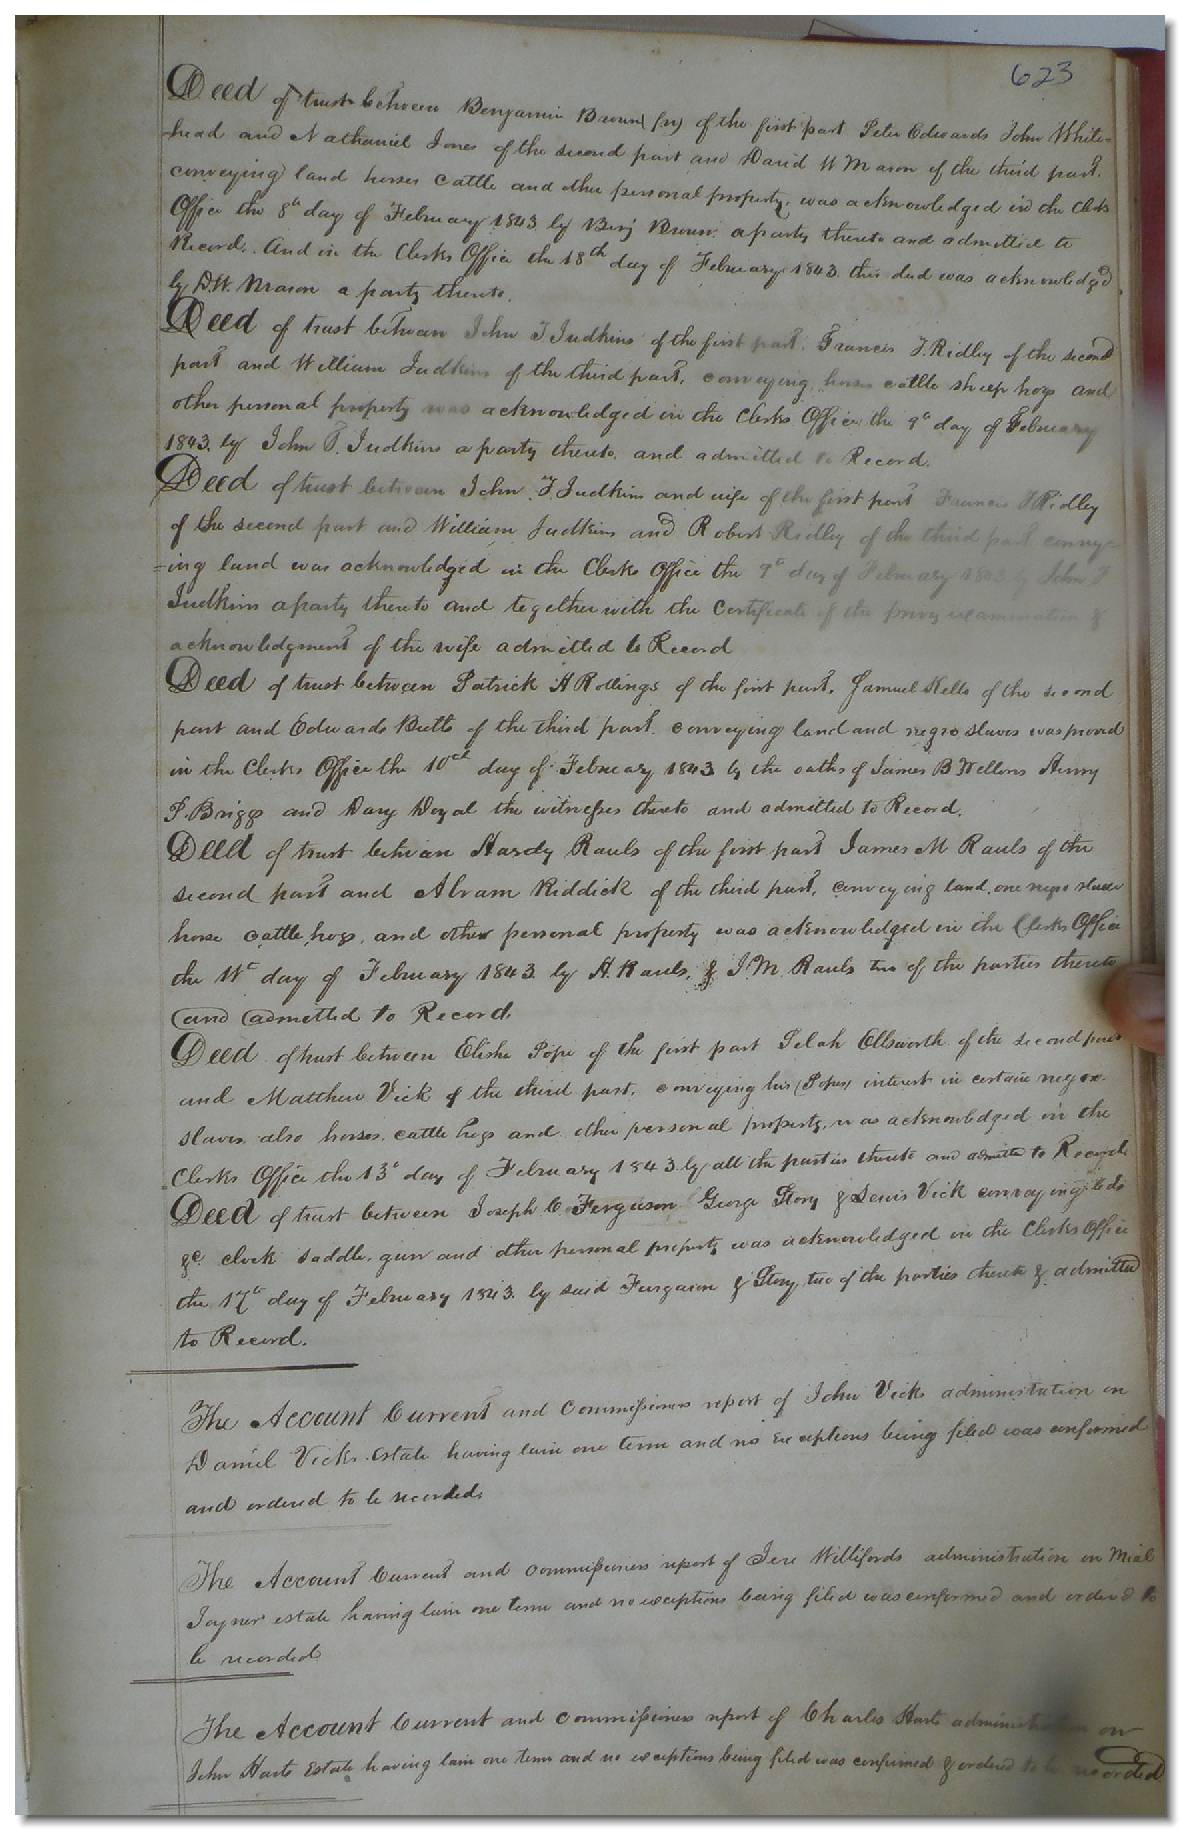 623
Deed of trust between Benjamin Brown (sr) of the first part Peter Edwards John White=
head and Nathaniel Jones of the second part and David W Mason of the third part.
conveying land horses cattle and other personal property, was acknowledged in the Clerks
Office the 8th day of February 1843 by Benj Brown a party thereto and admitted to
Record. And in the Clerks Office the 18th day of February 1843 this deed was acknowledged
by D.W. Mason a party thereto.
Deed of trust between John T Judkins of the first part. Francis T. Ridley of the second
part and William Judkins of the third part. conveying horses cattle sheep hogs and
other personal property was acknowledged in the Clerks Office the 9th day of February
1843. by John T. Judkins a party thereto. and admitted to Record.
Deed of trust between John T. Judkins and wife of the first part Francis T Ridley
of the second part and William Judkins and Robert Ridley of the third part convey=
=ing land was acknowledged in the Clerks Office the 9th day of February 1843 by John T
Judkins a party thereto and together with the Certificate of the privy examination &
acknowledgment of the wife admitted to Record
Deed of trust between Patrick H Rollings of the first part. Samuel Kello of the second
part and Edwards Butts of the third part. conveying land and negro slaves was proved
in the Clerks Office the 10th day of February 1843 by the oaths of James B Wellons Henry
P. Briggs and Davy Doyal the witnesses thereto and admitted to Record.
Deed of trust between Hardy Rawls of the first part James M Rawls of the
second part and Abram Riddick of the third part, conveying land, one negro slave
horse cattle hogs, and other personal property was acknowledged in the Clerks Office
the 11th day of February 1843 by H. Rawls, & J. M. Rawls two of the parties thereto
and admitted to Record.
Deed of trust between Elisha Pope of the first part Selah Ellsworth of the second part
and Matthew Vick of the third part. conveying his (Popes) interest in certain negro
slaves also horses, cattle hogs and other personal property, was acknowledged in the
Clerks Office the 13th day of February 1843 by all the parties thereto and admitted to Record
Deed of trust between Joseph C. Ferguson George Story & Lewis Vick conveying beds
&c clock saddle, gun and other personal property was acknowledged in the Clerks Office
the 17th day of February 1843. by said Furgason & Story, two of the parties thereto & admitted
to Record.
The Account Current and Commissioners report of John Vicks administration on
Daniel Vicks Estate having lain one term and no exceptions being filed was confirmed
and ordered to be recorded.
The Account Current and Commissioners report of Jere Willifords administration on Mial
Joyner estate having lain one term and no exceptions being filed was confirmed and ordered to
be recorded
The Account Current and Commissioners report of Charles Harts administration on
John Harts Estate having lain one term and no exceptions being filed was confirmed & ordered to be recorded